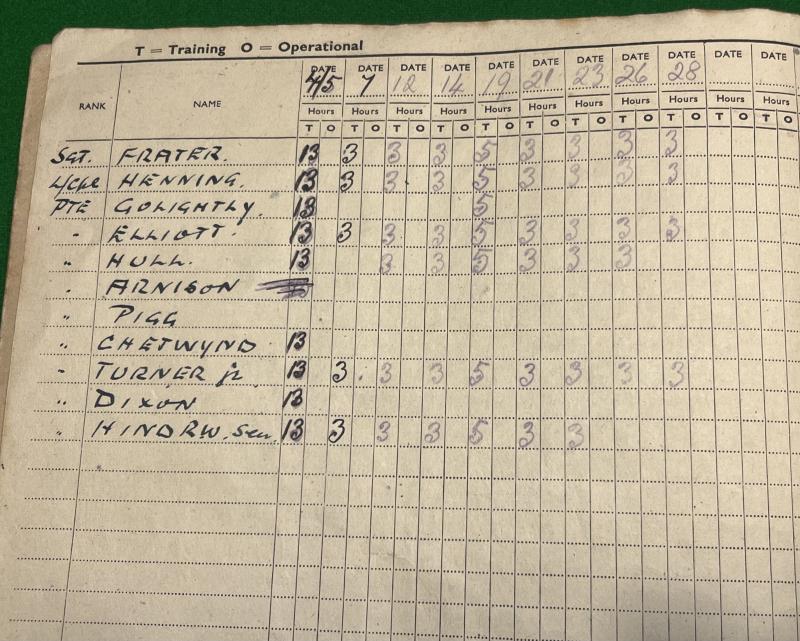 T = Training O = Operational
RANK NAME DATE DATE DATE DATE DATE DATE DATE DATE DATE DATE DATE
4/5 7 12 14 19 21 23 26 28
Hours Hours Hours Hours Hours Hours Hours Hours Hours Hours Hours
T O T O T O T O T O T O T O T O T O T O T O
Sgt. FRATER. 13 3 3 3 5 3 3 3 3
L/Cpl HENNING. 13 3 3 3 5 3 3 3 3
PTE GOLIGHTLY. 13 5
" ELLIOTT. 13 3 3 3 5 3 3 3 3
" HULL. 13 3 3 5 3 3 3
" ARNISON
" PIGG
" CHETWYND 13
" TURNER jr 13 3 3 3 5 3 3 3 3
" DIXON 13
" HINDRW. Sen. 13 3 3 3 5 3 3